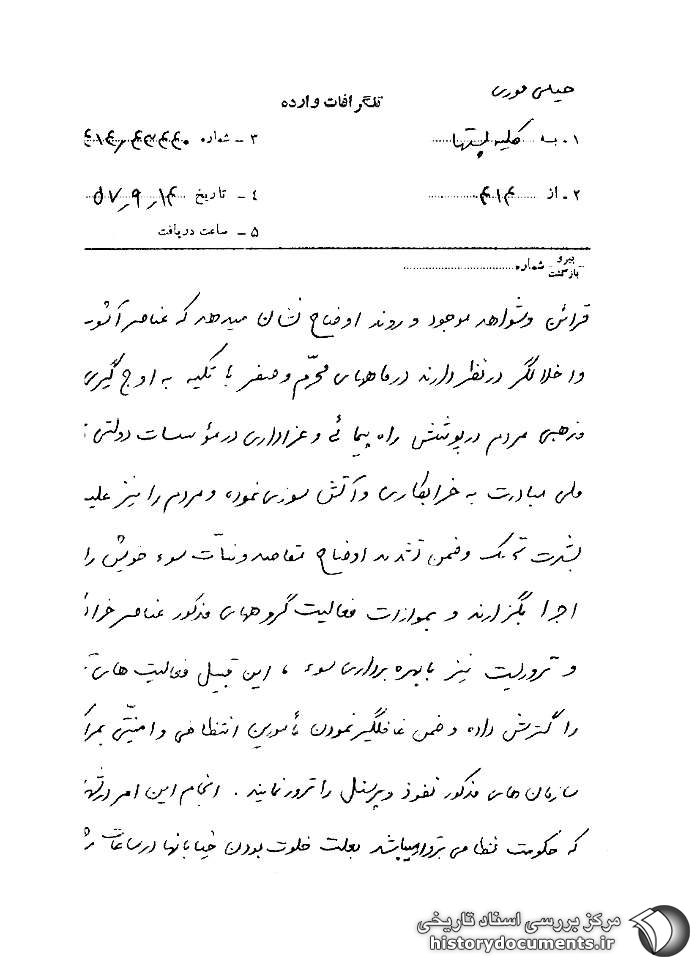 خیلی فوری
تلگرافات وارده
۱. به کلیه پستها
۳ – شماره ۴۱۴٫۴۳۴۴۰
۲. از ۴۱۴
۴ – تاریخ ۱۴٫۹٫۵۷
۵ – ساعت دریافت
پیرو
بازگشت شماره
قرائن و شواهد موجود و روند اوضاع نشان میدهد که عناصر آشوب
و اخلالگر در نظر دارند در ماههای محرّم و صفر با تکیه به اوج گیری
مذهبی مردم در پوشش راه پیمائی و عزاداری در مؤسسات دولتی
ملی مبادرت به خرابکاری و آتش سوزی نموده و مردم را نیز علیه
بشدت تحریک و ضمن تشدید اوضاع مقاصد و نیّات سوء خویش را
اجرا بگزارند و بموازات فعالیت گروههای مذکور عناصر
و تروریست نیز با بهره برداری سوء، این قبیل فعالیت های
را گسترش داده و ضمن غافلگیر نمودن مأمورین انتظامی و امنیّتی
سازمان های مذکور نفوذ و پرسنل را ترور نمایند. انجام این امر در
که حکومت نظامی برقرار میباشد بعلت خلوت بودن خیابانها در ساعات
مرکز بررسی اسناد تاریخی
historydocuments.ir